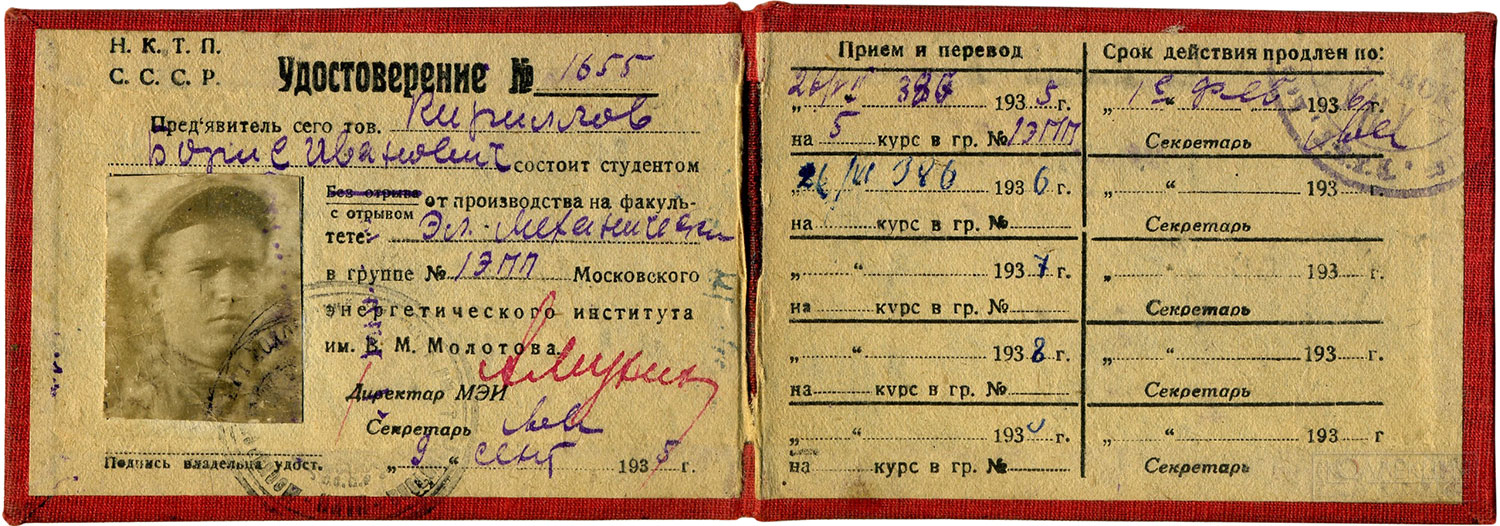 Н. К. Т. П.
С. С. С. Р.
Удостоверение № 1655
Пред'явитель сего тов. Кириллов
Борис Иванович состоит студентом
Без отрыва
с отрывом от производства на факуль-
тете: Эл.-Механическом
в группе № 1ЭПП Московского
энергетического института
им. В. М. Молотова.
Директар МЭИ
Секретарь
„ 9 “ сент 1935 г.
Подпись владельца удост.
Прием и перевод
1935 г.
на 5 курс в гр. № 1ЭПП
1936 г.
на курс в гр. №
„ “ 1937 г.
на курс в гр. №
„ “ 1938 г.
на курс в гр. №
„ “ 193 г.
на курс в гр. №
Срок действия продлен по:
„ 1 “ фев 1936 г.
Секретарь
„ “ 193 г.
Секретарь
„ “ 193 г.
Секретарь
„ “ 193 г.
Секретарь
„ “ 193 г
Секретарь